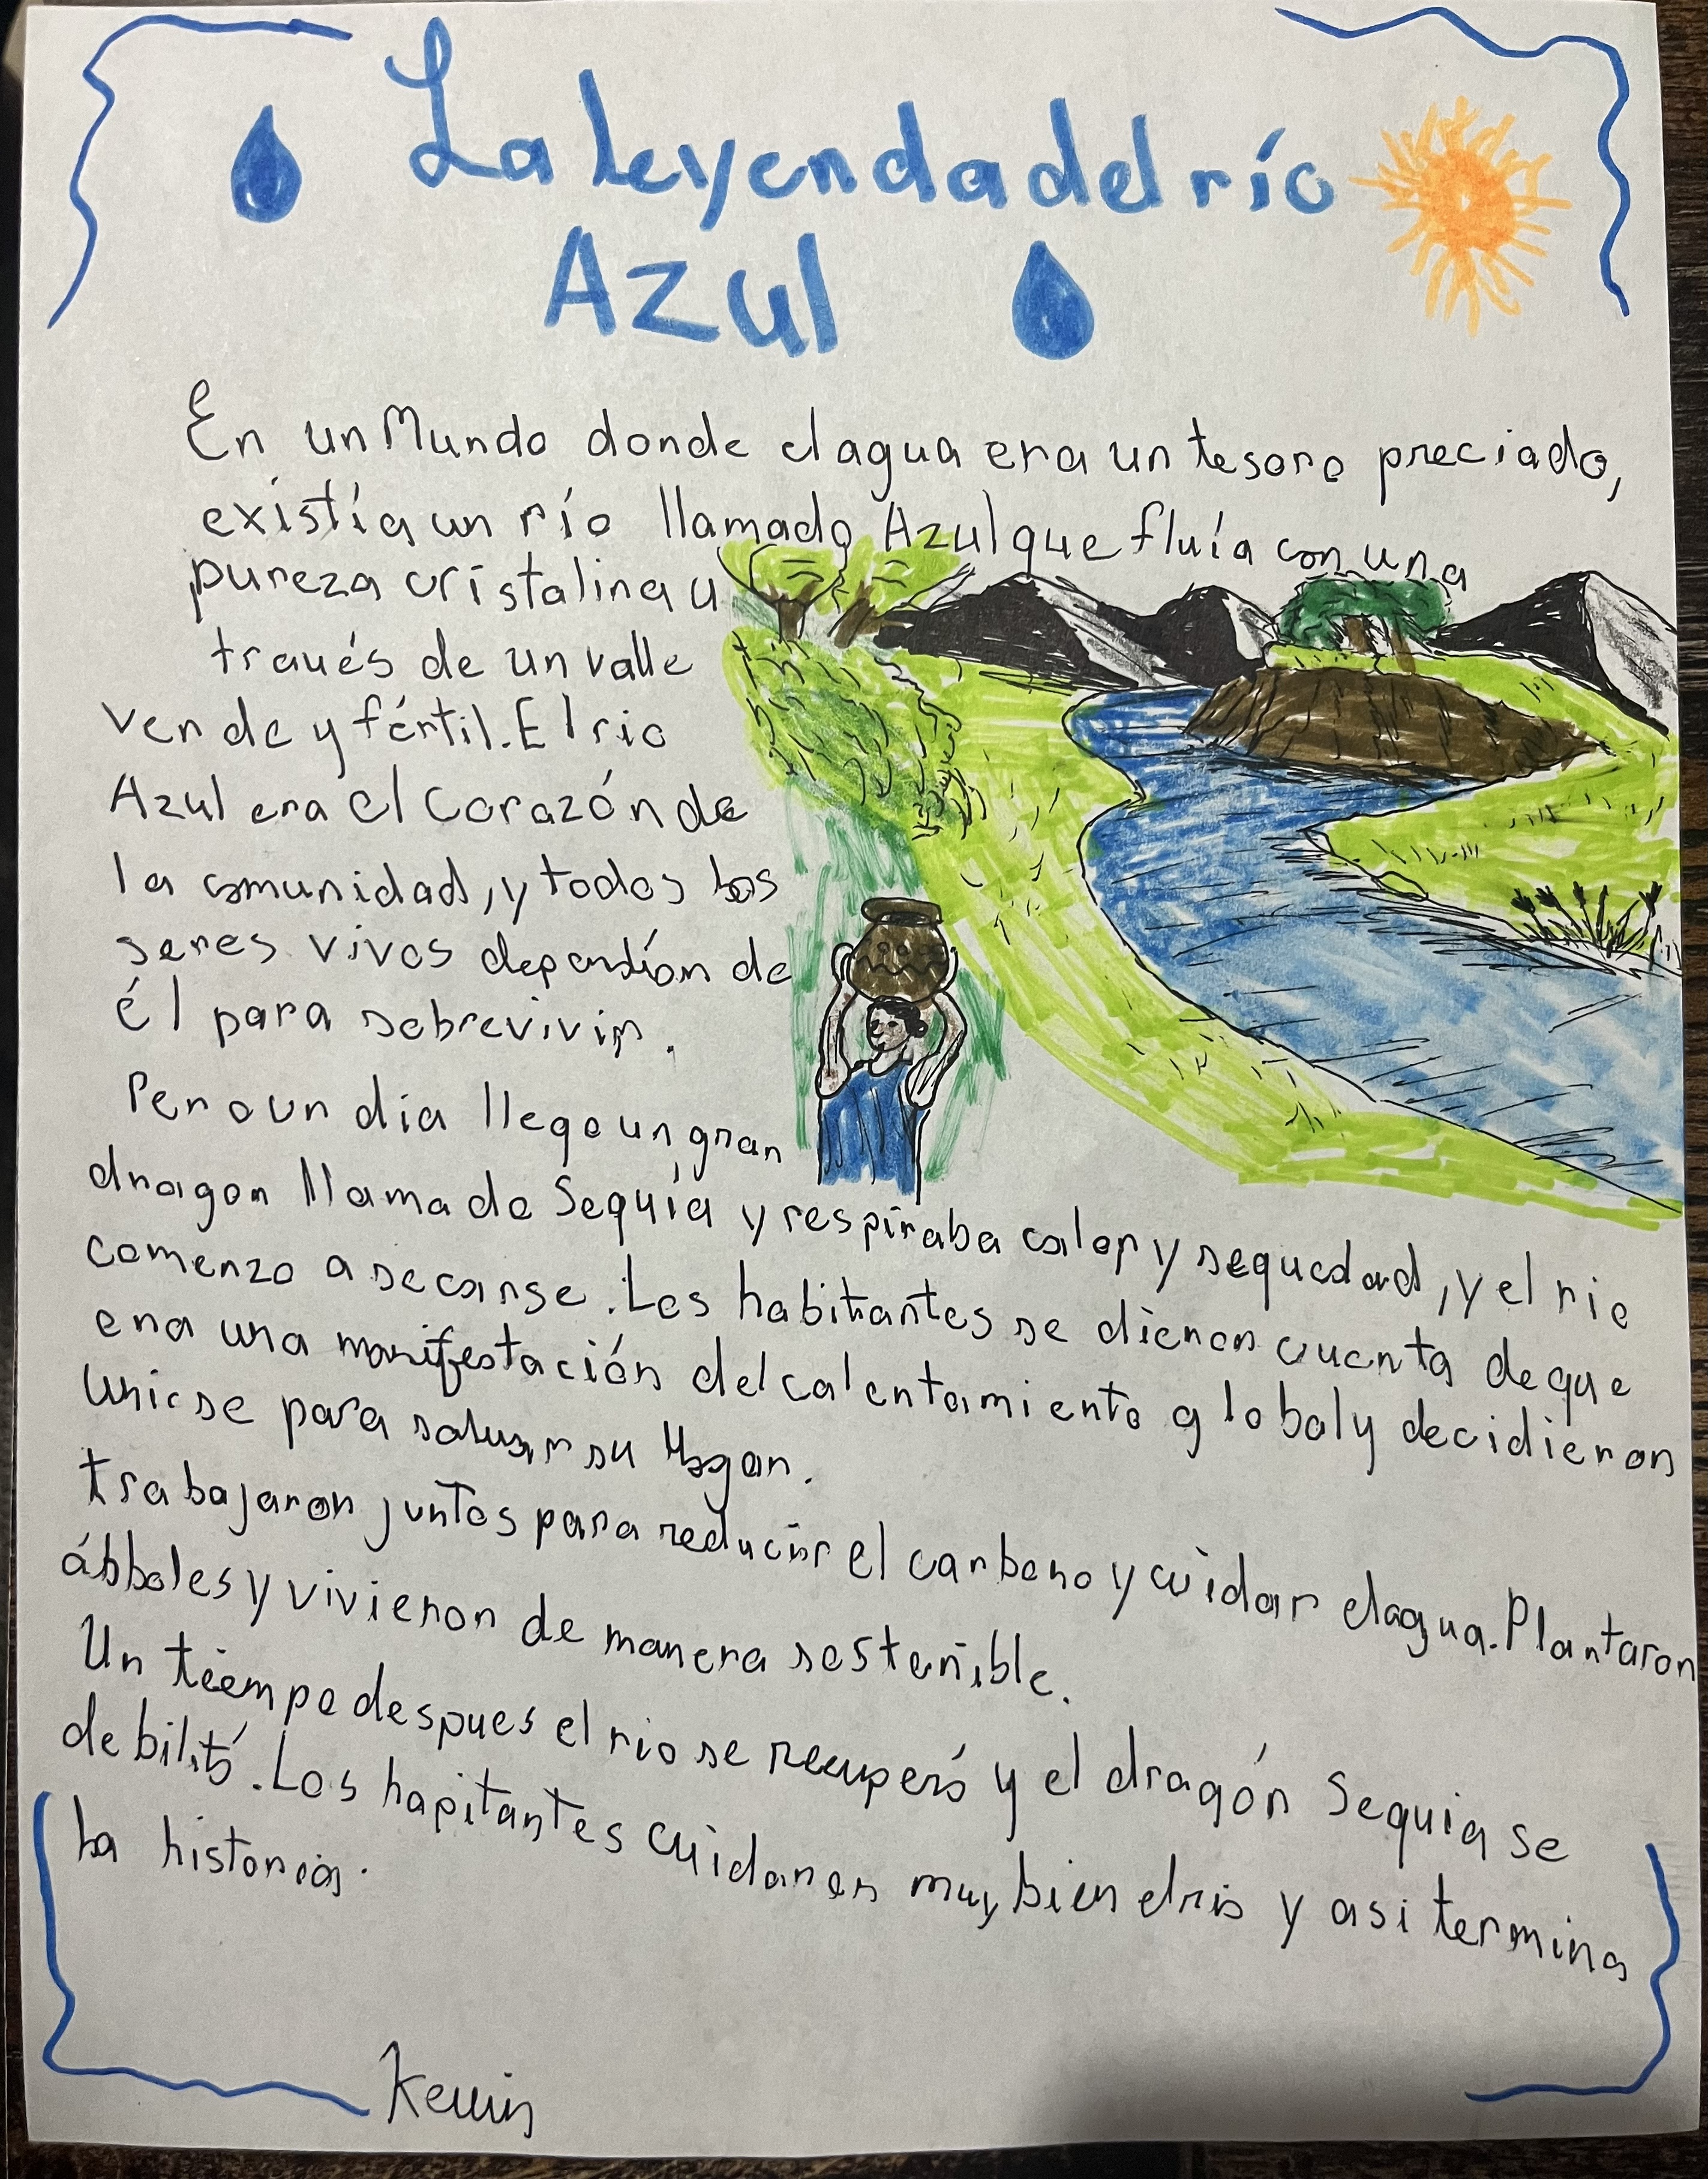 La leyenda del río
Azul
En un Mundo donde el agua era un tesoro preciado,
existía un río llamado Azul que fluía con una
pureza cristalina u
través de un valle
verde y fértil. El rio
Azul era el corazón de
la comunidad, y todos los
seres vivos dependían de
él para sobrevivir.
Pero un dia llego un gran
dragon llamado Sequía y respiraba calor y sequedad, y el rio
comenzo a secarse. Los habitantes se dieron cuenta de que
era una manifestación del calentamiento global y decidieron
unirse para salvar su Hogar.
trabajaron juntos para reducir el carbono y cuidar el agua. Plantaron
ábboles y vivieron de manera sostenible.
Un tiempo despues el rio se recuperó y el dragón Sequia se
debilitó. Los hapitantes cuidaron muy bien el rio y asi termina
la historia.
Kevin